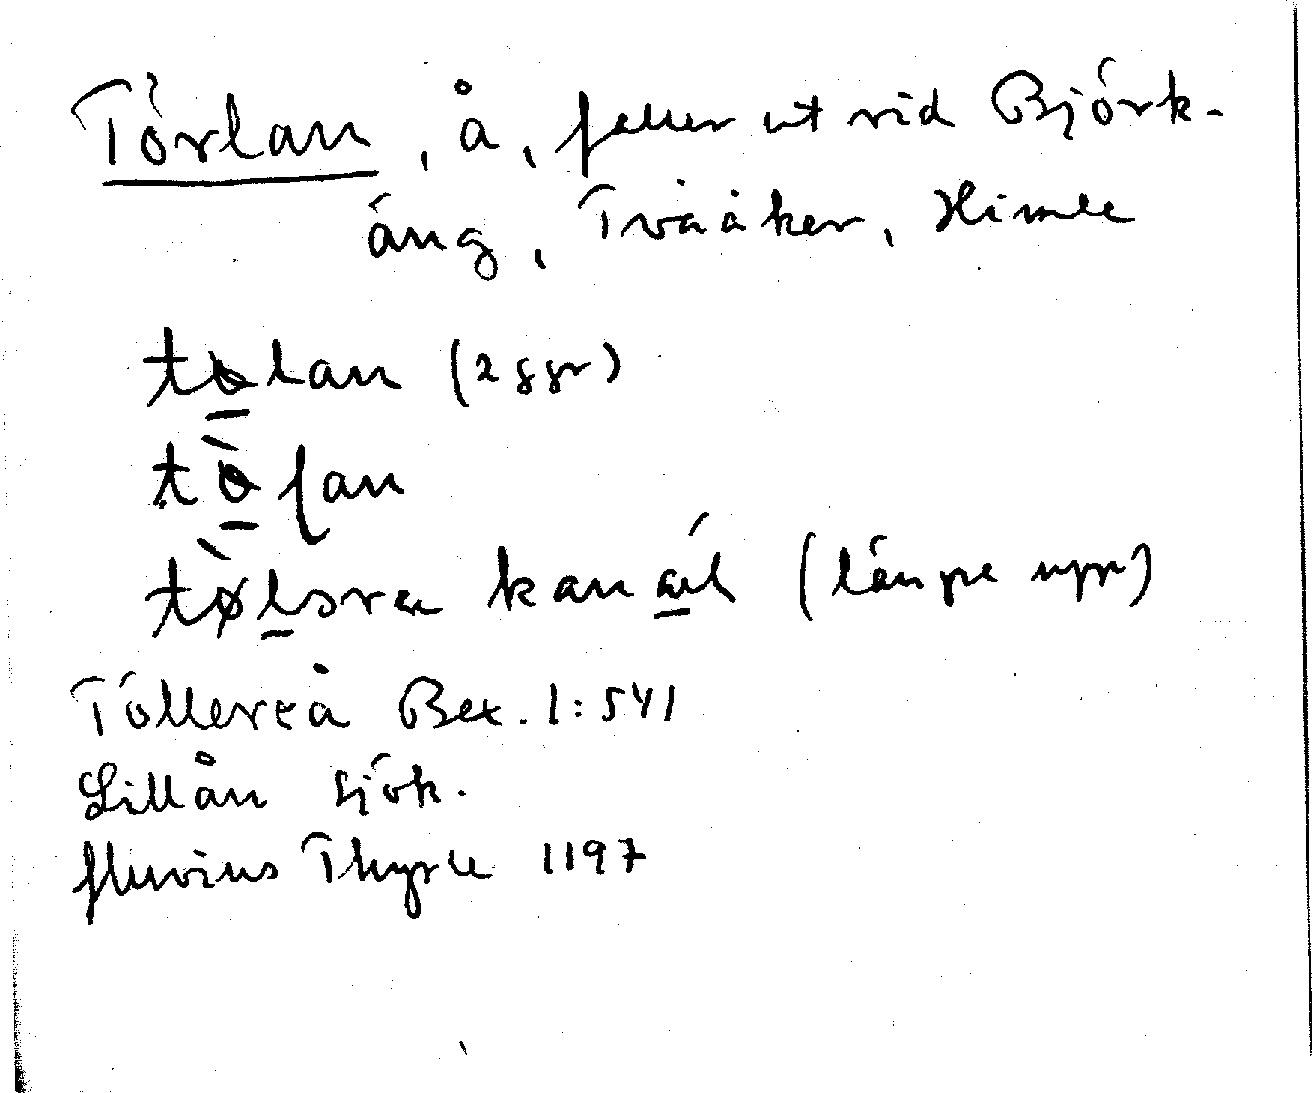 Törlan, å, faller ut vid Björk-
äng, Tvååker, Himle
tølan (2 ggr)
tø̀ſan
tø̀lsra kanál (längre upp)
Töllereå Bex. 1:541
Lillån sjök.
fluvius Thyrle 1197